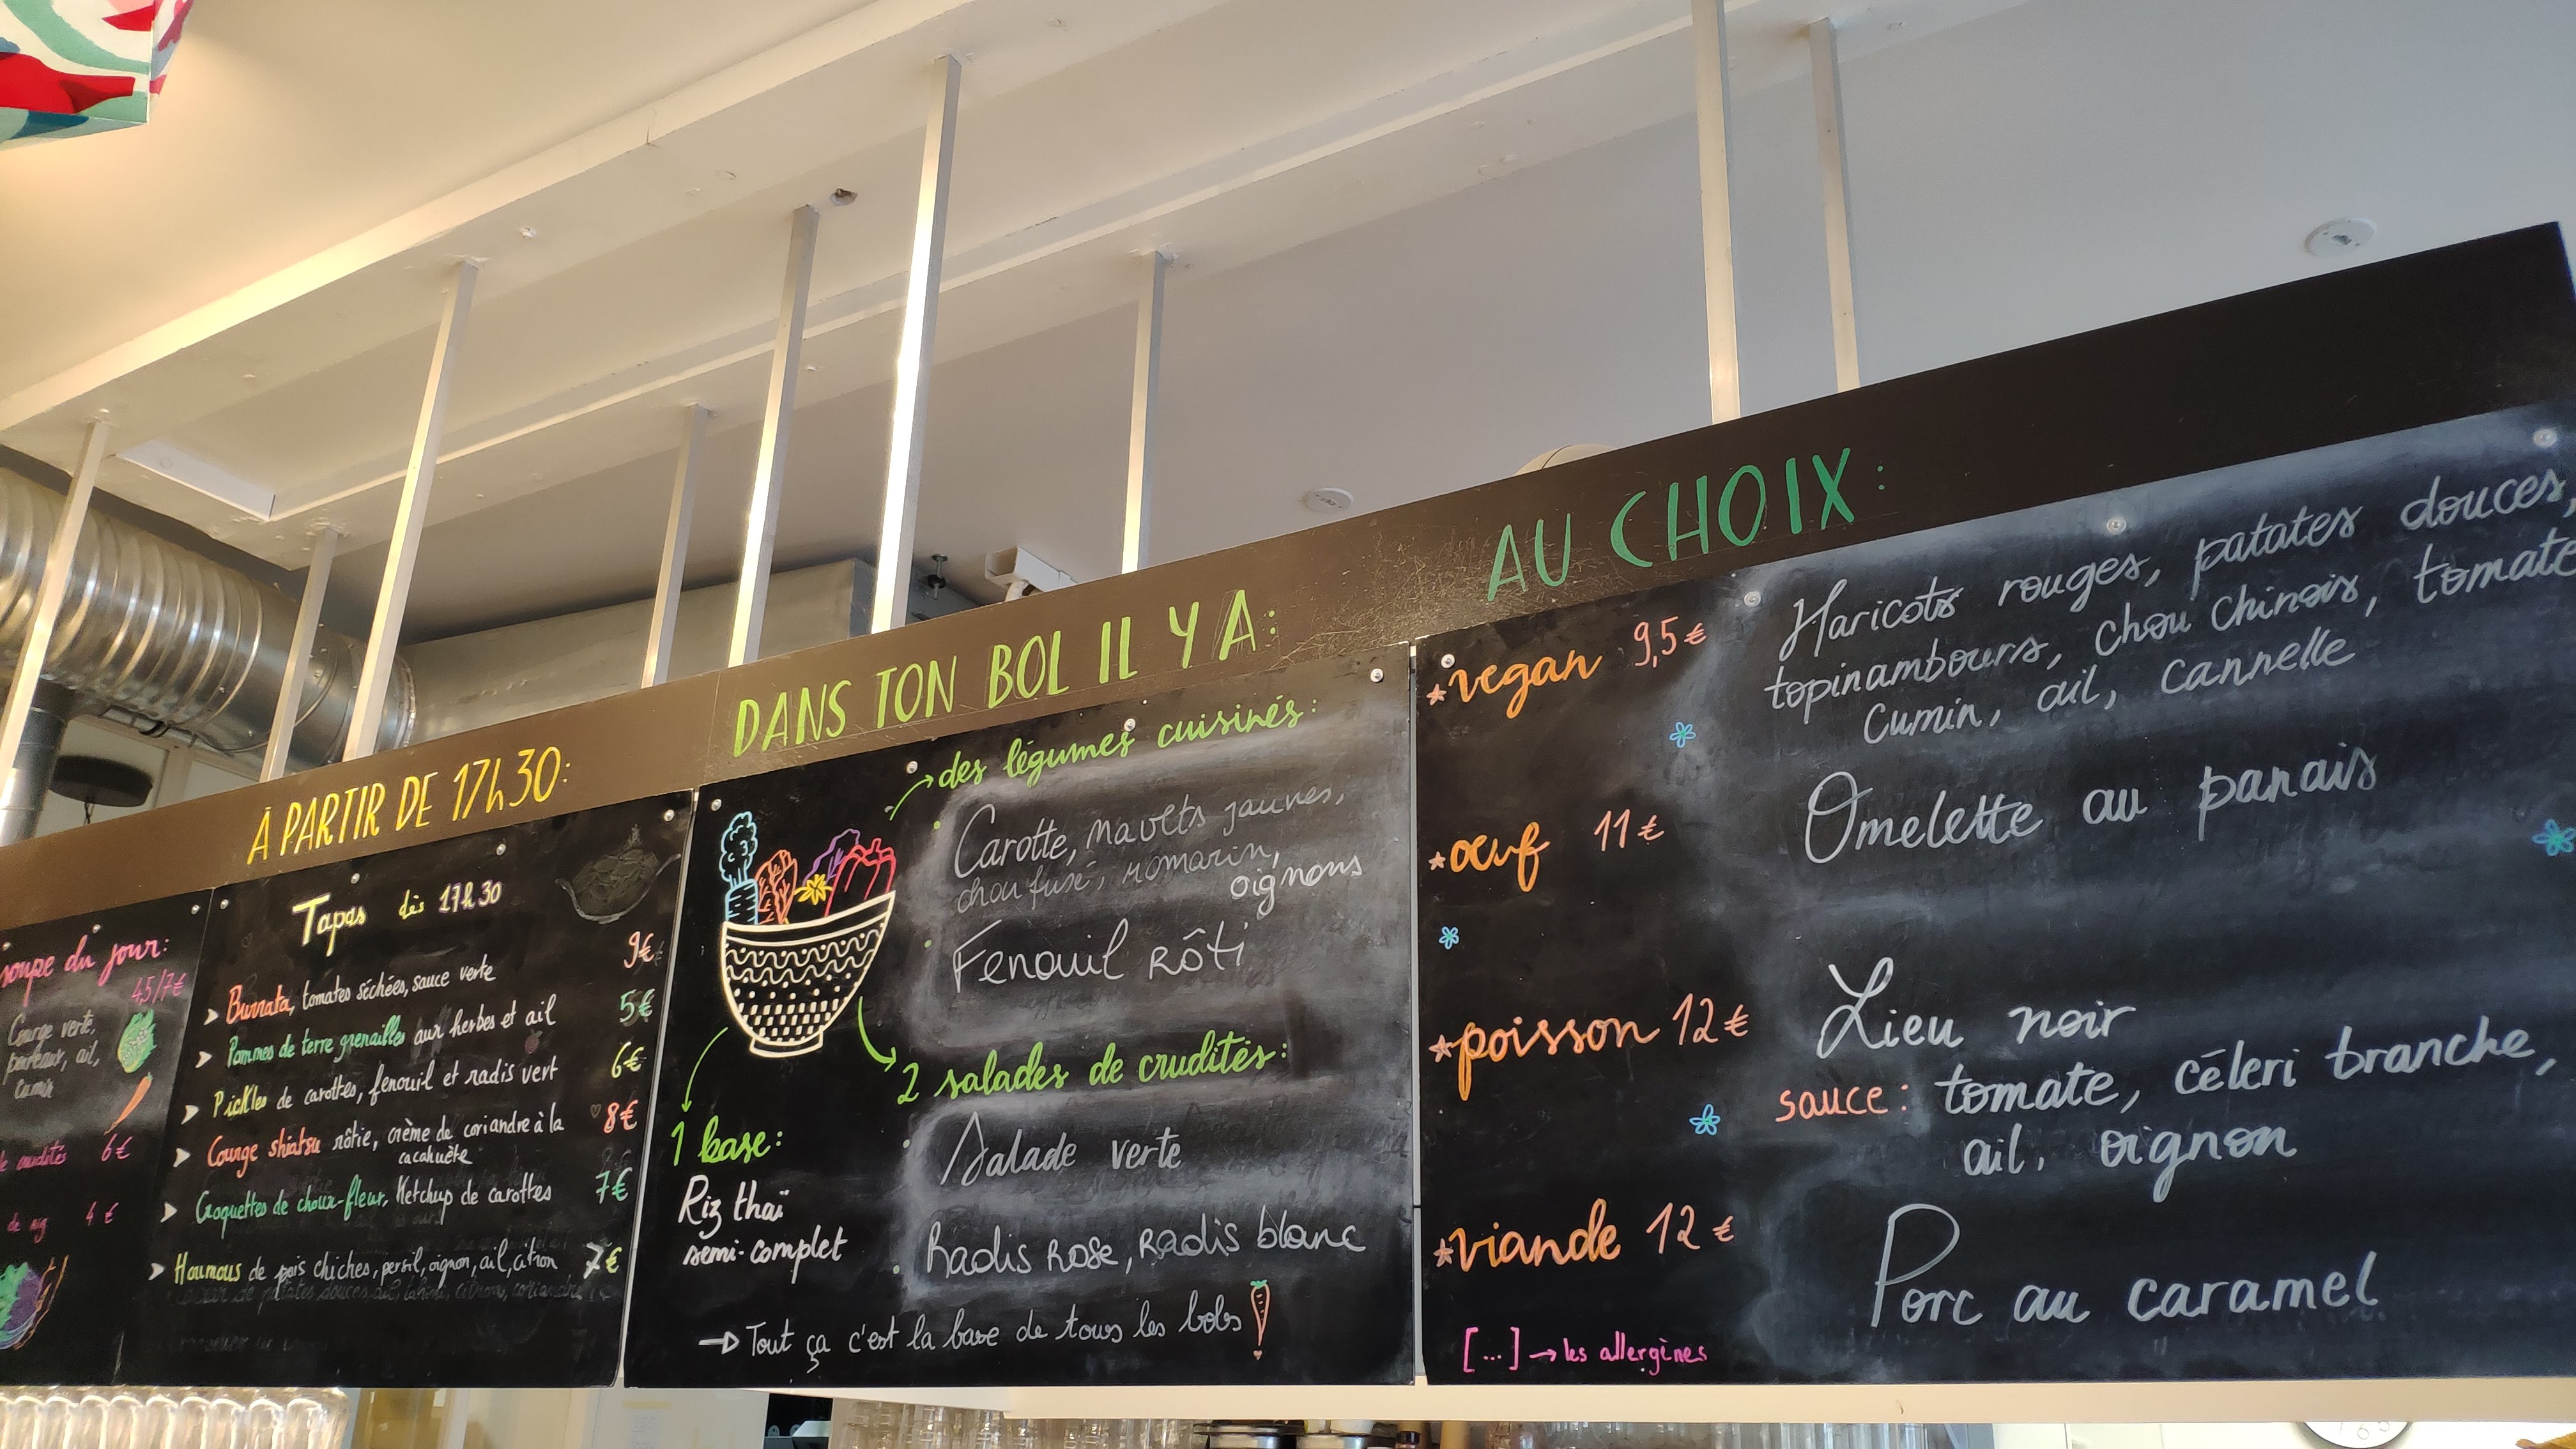 soupe du jour:
4,5/7€
Courge verte,
poireaux, ail,
cumin
crudités 6€
4€
À PARTIR DE 17h30:
Tapas dès 17h30
➤ Burrata, tomates séchées, sauce verte 9€
➤ Pommes de terre grenailles aux herbes et ail 5€
➤ Pickles de carottes, fenouil et radis vert 6€
➤ Courge shiatsu rôtie, crème de coriandre à la 8€
cacahuète
➤ Croquettes de choux-fleur, Ketchup de carottes 7€
➤ Houmous de pois chiches, persil, oignon, ail, citron 7€
DANS TON BOL IL Y A:
des légumes cuisinés:
Carotte, navets jaunes,
chou fusé, romarin,
oignons
Fenouil rôti
2 salades de crudités:
Salade verte
Radis rose, radis blanc
1 base:
Riz thaï
semi-complet
→ Tout ça c'est la base de tous les bols
AU CHOIX:
*vegan 9,5€
Haricots rouges, patates douces,
topinambours, chou chinois, tomate
Cumin, ail, cannelle
*oeuf 11€
Omelette au panais
*poisson 12€
Lieu noir
sauce: tomate, céleri branche,
ail, oignon
*viande 12€
Porc au caramel
[...] → les allergènes